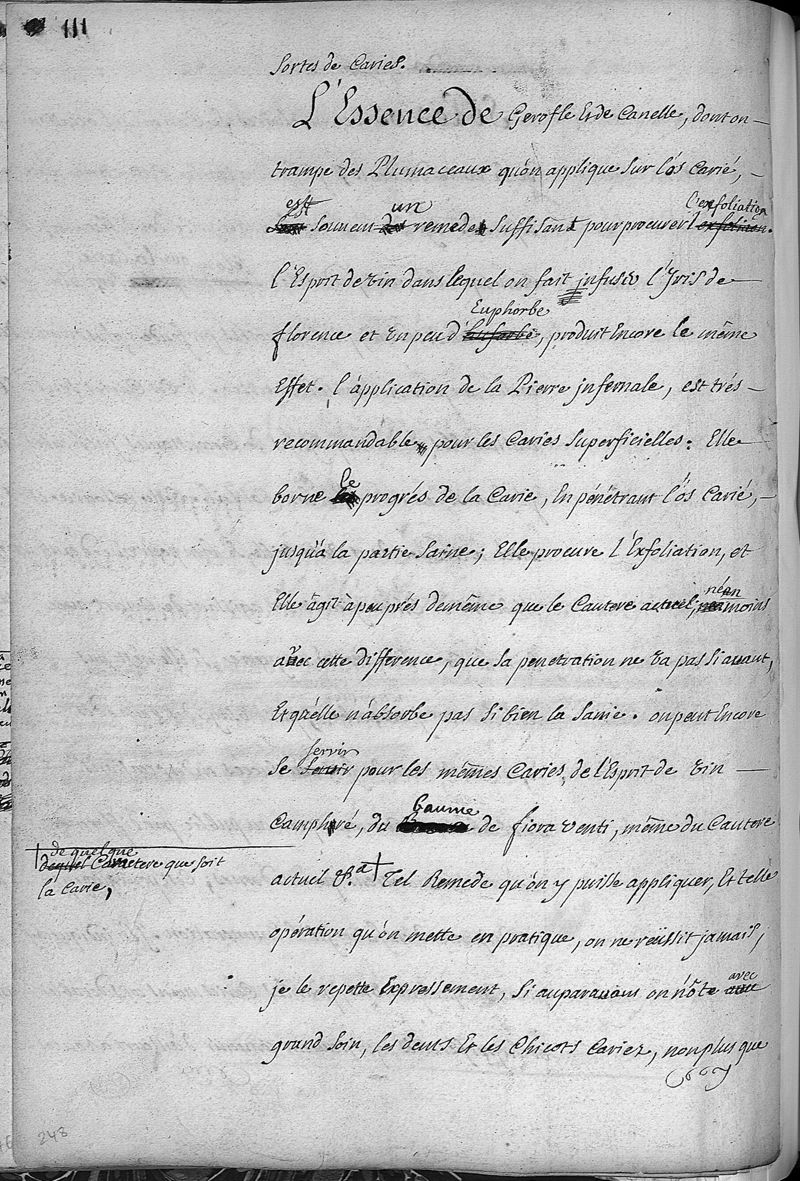 111
Sortes de Caries.
L'Essence de Gerofle Et de Canelle, dont on
trampe des Plumaceaux qu'on applique sur l'ôs Carié,
est un l'exfoliation
Souvent remede Suffisant pour procurer
l'Esprit de vin dans lequel on fait infuser l'Iris de
Euphorbe
florence et un peu d' , produit Encore le même
Effet. l'application de la Pierre infernale, est trés
recommandable pour les Caries Superficielles: Elle
le
borne progrés de la Carie, En pénétrant l'ôs Carié,
jusqu'a la partie Saine; Elle procure l'Exfoliation, et
néan
Elle âgit à peu prés de même que le Cautere actuel; moins
avec cette difference, que sa penetration ne va pas si avant,
Et qu'elle n'absorbe pas si bien la Sanie. on peut Encore
servir
se pour les mêmes Caries, de l'Esprit de vin
baume
Camphré, du de fiora venti, même du Cautere
de quelque
Caractere que soit
la Carie,
actuel &.a † Tel Remede qu'on y puisse appliquer, Et telle
opération qu'on mette en pratique, on ne reüssit jamais,
avec
je le repette Expressement, si auparavant on n'ôte
grand Soin, les dents Et les Chicots Cariez, non plus que
248